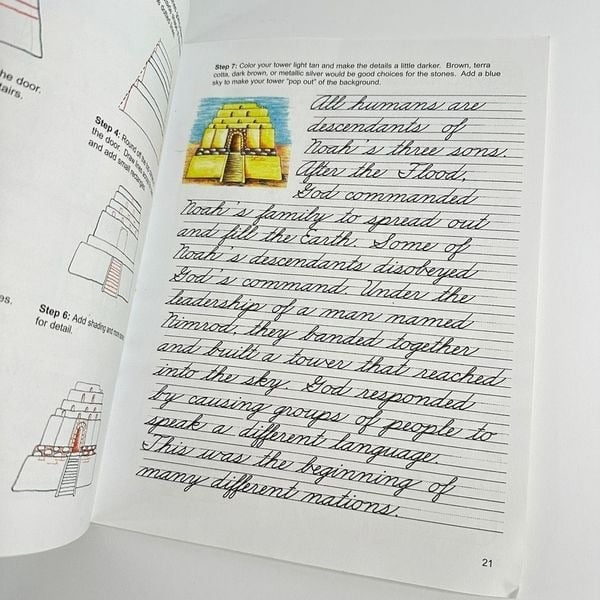 he door.
airs.
Step 4: Round off the
the door. Draw lines
and add small rectangles
es,
Step 6: Add shading and more
for detail.
Step 7: Color your tower light tan and make the details a little darker. Brown, terra
cotta, dark brown, or metallic silver would be good choices for the stones. Add a blue
sky to make your tower "pop out" of the background.
All humans are
descendants of
Noah's three sons.
After the Flood,
God commanded
Noah's family to spread out
and fill the Earth. Some of
Noah's descendants disobeyed
God's command. Under the
leadership of a man named
Nimrod, they banded together
and built a tower that reached
into the sky. God responded
by causing groups of people to
speak a different language.
This was the beginning of
many different nations.
21